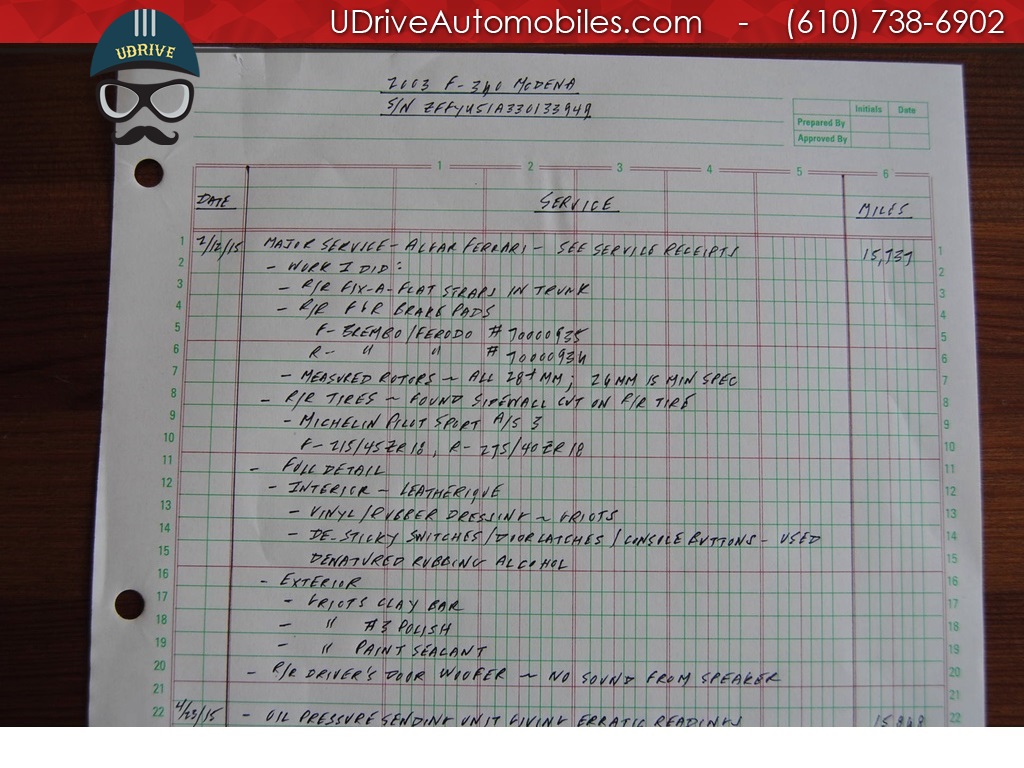 UDriveAutomobiles.com - (610) 738-6902
UDRIVE
2003 F-360 MODENA
S/N ZFFYU51A330133949
Initials Date
Prepared By
Approved By
1 2 3 4 5 6
DATE SERVICE MILES
1 2/12/15 MAJOR SERVICE - ALGAR FERRARI - SEE SERVICE RECEIPTS 15,737 1
2 - WORK I DID: 2
3 - R/R FIX-A-FLAT STRAPS IN TRUNK 3
4 - R/R F&R BRAKE PADS 4
5 F- BREMBO/FERODO # 70000935 5
6 R- " " # 70000934 6
7 - MEASURED ROTORS ~ ALL 28+ MM; 26 MM IS MIN SPEC 7
8 - R/R TIRES ~ FOUND SIDEWALL CUT ON R/R TIRE 8
9 - MICHELIN PILOT SPORT A/S 3 9
10 F- 215/45ZR18, R- 275/40ZR18 10
11 - FULL DETAIL 11
12 - INTERIOR - LEATHERIQUE 12
13 - VINYL/RUBBER DRESSING ~ GRIOTS 13
14 - DE-STICKY SWITCHES/DOOR LATCHES/CONSOLE BUTTONS - USED 14
15 DENATURED RUBBING ALCOHOL 15
16 - EXTERIOR 16
17 - GRIOTS CLAY BAR 17
18 - " #3 POLISH 18
19 - " PAINT SEALANT 19
20 - R/R DRIVER'S DOOR WOOFER ~ NO SOUND FROM SPEAKER 20
21 21
22 4/23/15 - OIL PRESSURE SENDING UNIT GIVING ERRATIC READINGS 15,868 22